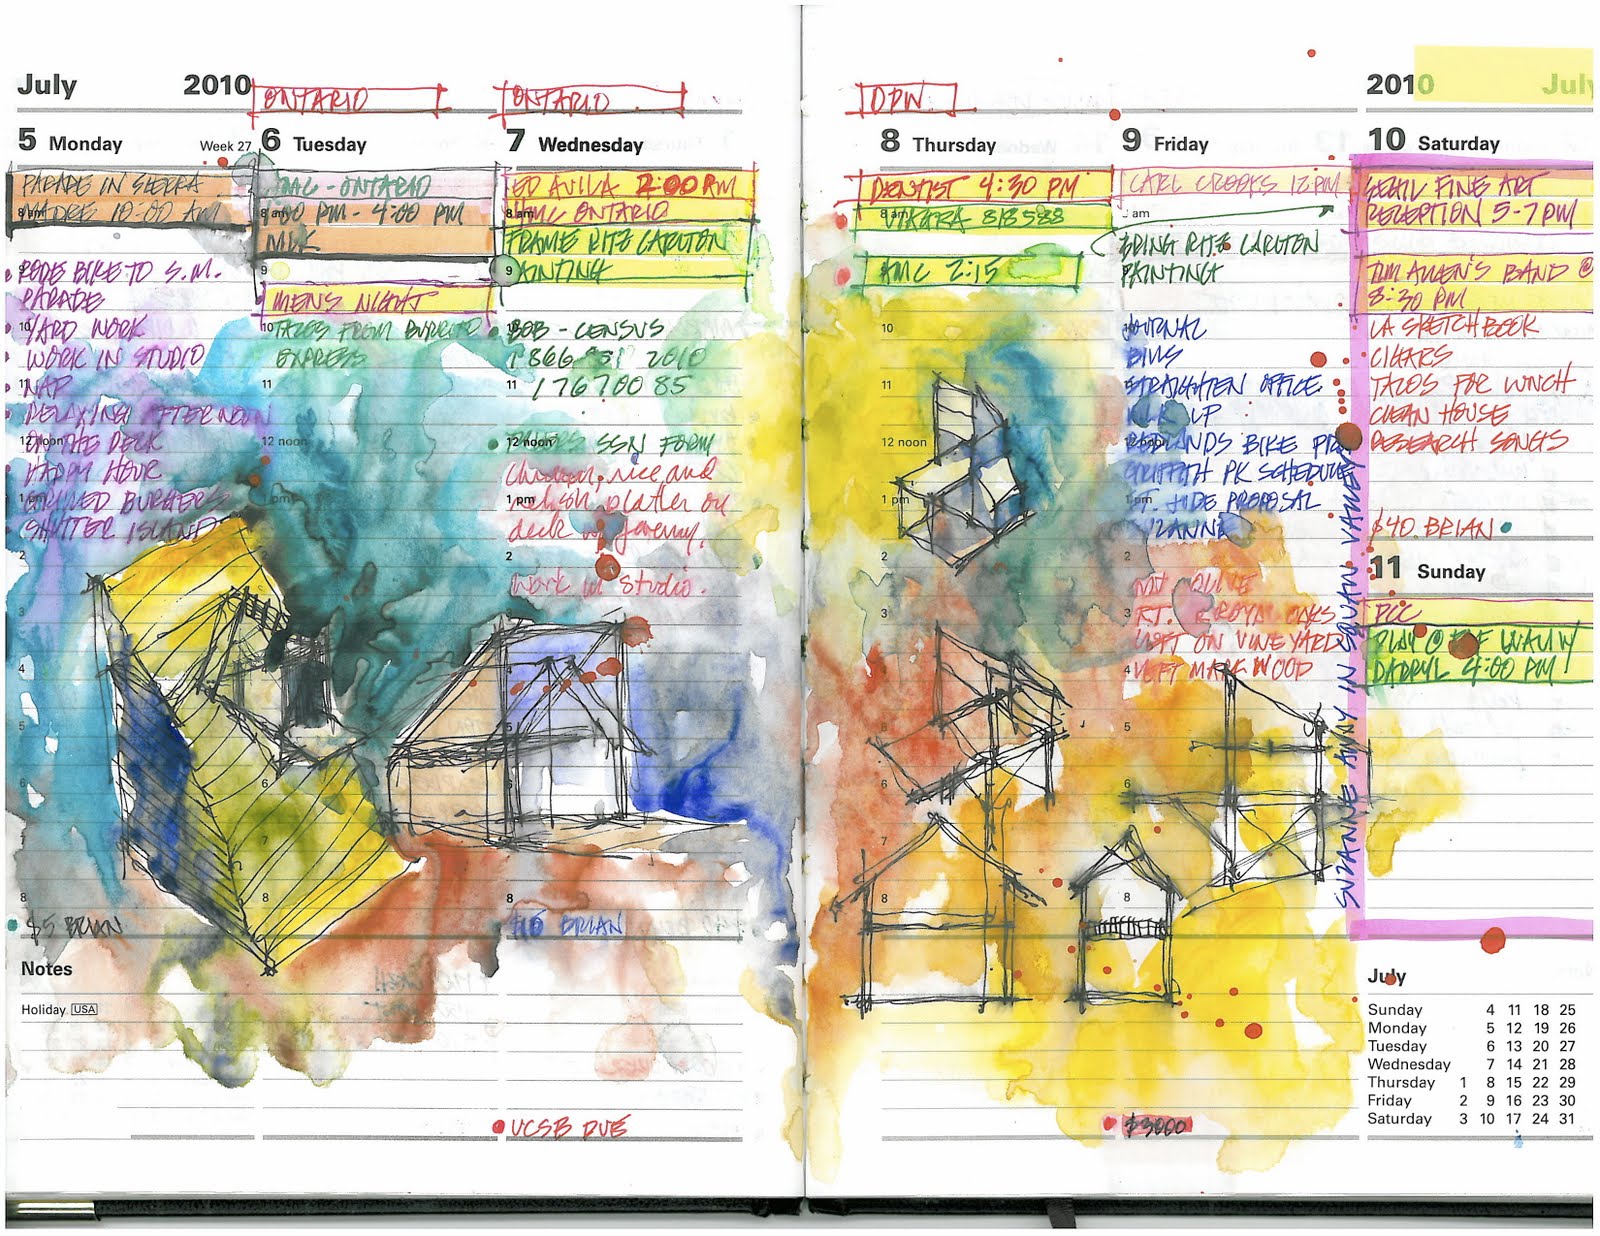 July 2010
ONTARIO
ONTARIO
5 Monday Week 27
PARADE IN SIERRA
MADRE 10:00 AM
8 am
9
RODE BIKE TO S.M.
PARADE
10
YARD WORK
WORK IN STUDIO
11
NAP
RELAXING AFTERNOON
12 noon
ON THE DECK
HAPPY HOUR
1 pm
GRILLED BURGERS
SHUTTER ISLAND
2
3
4
5
6
7
8
$5 BRIAN
Notes
Holiday USA
6 Tuesday
HMC - ONTARIO
8 am
1:00 PM - 4:00 PM
9
MEN'S NIGHT
10
TACOS FROM BURRITO
EXPRESS
11
12 noon
1 pm
3
4
5
6
7
8
7 Wednesday
ED AVILA 2:00 PM
8 am
HMC ONTARIO
FRAME RITZ CARLTON
9
PAINTING
BOB - CENSUS
1 866 2010
11
1767 00 85
12 noon
SSN FORM
Chicken, rice and
1 pm
platter on
deck w/ Jeremy.
2
work in studio.
3
4
5
6
7
8
$15 BRIAN
UCSB DUE
DPW
8 Thursday
DENTIST 4:30 PM
8 am
VIAGRA 818588
HMC 2:15
10
11
12 noon
1 pm
2
3
4
5
6
7
8
9 Friday
CARL CROOKS 12 PM
am
BRING RITZ CARLTON
PAINTING
JOURNAL
BILLS
STRAIGHTEN OFFICE
12 noon
REDLANDS BIKE
GRIFFITH PK SCHEDULE
1 pm
ST. JUDE PROPOSAL
SUZANNE
2
RT. ROYAL OAKS
LEFT ON VINEYARD
4
LEFT MARKWOOD
5
6
7
8
$3000
SUZANNE AWAY IN SQUAW VALLEY
2010 July
10 Saturday
FINE ART
RECEPTION 5-7 PM
TIM ALLEN'S BAND @
8:30 PM
LA SKETCHBOOK
CIGARS
TACOS FOR LUNCH
CLEAN HOUSE
RESEARCH SONGS
$40. BRIAN
11 Sunday
PCC
PLAY @ THE
DARRYL 4:00 PM
July
Sunday 4 11 18 25
Monday 5 12 19 26
Tuesday 6 13 20 27
Wednesday 7 14 21 28
Thursday 1 8 15 22 29
Friday 2 9 16 23 30
Saturday 3 10 17 24 31